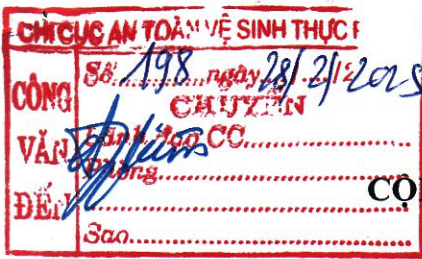 CHI CỤC AN TOÀN VỆ SINH THỰC P
CÔNG VĂN ĐẾN
Số 198 ngày 28/2/2025
CHUYỂN
Lãnh đạo CC
Phòng
Sao
CỘI